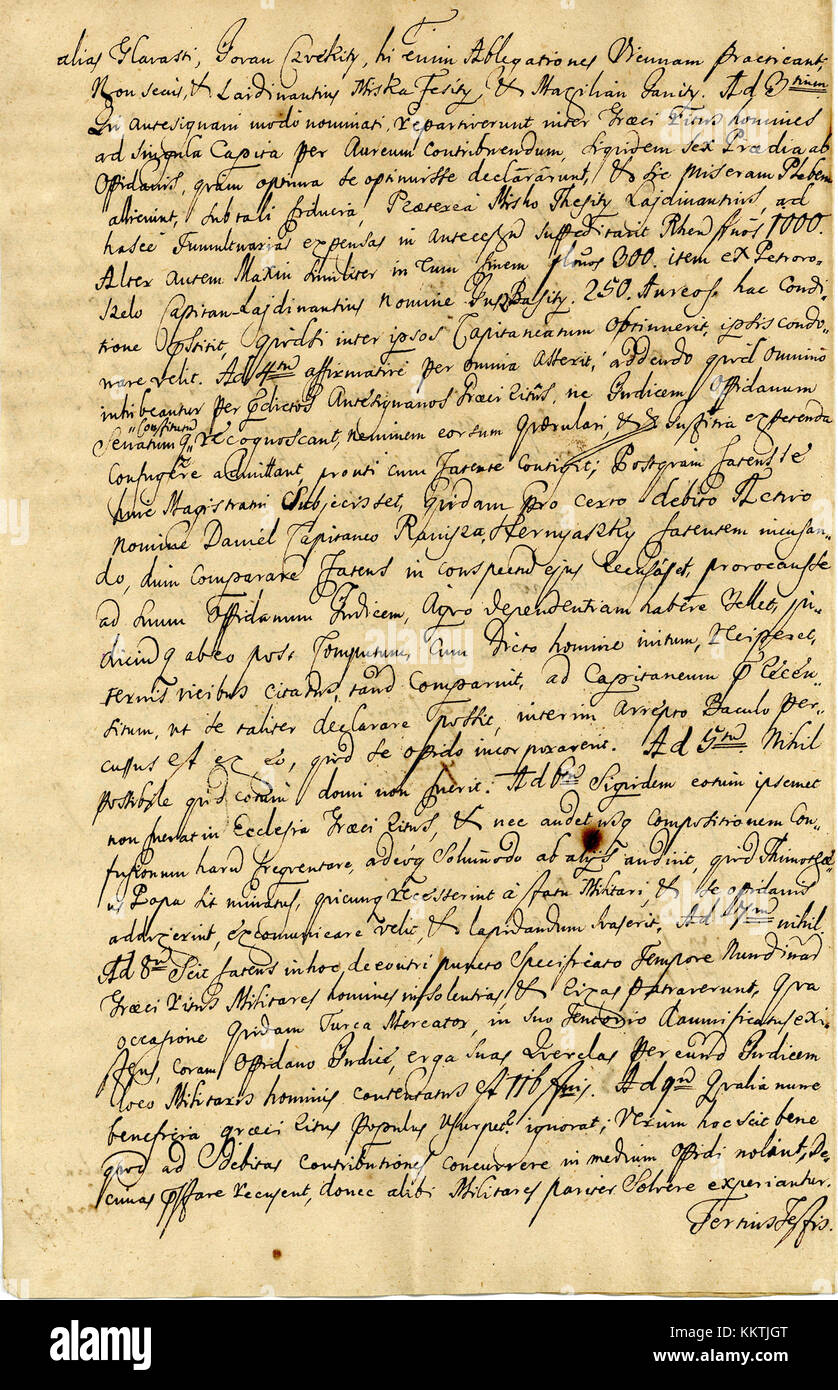 alias Glavasti, Jovan Czvekity, hi enim Ablegationes Viennam practicant,
Non secus, & Laidinantius Miska Tesity, & Maxilian Janity. Ad 3tium
Qvi antesignani modo nominati, repartiverunt inter Græci Ritus homines
ad singula Capita per Aureum contribuendum, siqvidem sex Prædia ab
Oppidanis, qvam optima se optinuisse declararunt, & sic miseram Plebem
alliciunt, sub tali fiducia, Præterea Misko Thesity Lajdinantius, ad
hasce Tumultuarias expensas in antecessum suppeditavit Rhen fnos 1000.
Alter autem Maxin similiter in eum finem flnos 300. item ex Petrovo-
szelo Capitan-Lajdinantius nomine 250. Aureos hac Condi-
tione qvod si inter ipsos Capitaneatum obtinuerit, ipsis condo-
nare velit. Ad 4tum affirmative per omnia asserit, addendo qvod omnino
inhibeantur per Antesignanos Græci Ritus, ne Judicem Oppidanum
"Constitutum"
Senatumq recognoscant, neminem eorsum qværulari, & Justitia experenda
Confugere admittant, prouti cum Fatente contigit; Postqvam Fatens se
huic Magistratui Subjecisset, qvidam pro certo debito Activo
nomine Daniel Capitaneo Ranisza, Hernyaszky Fatentem incusan-
do, dum comparare Fatens in conspectu ejus recusasset, provocausse
ad suum Oppidanum Judicem, a qvo dependentiam habere vellet, ju-
diciumq ab eo post Computum cum Dicto homine initum, reciperet,
ternis vicibus citatus, tand comparuit, ad Capitaneum
situm, ut se taliter declarare possit, interim Arrepto Baculo per-
cussus est ex eo, qvod se oppido incorporaverit. Ad 5tum Nihil
possibile qvod coram domi non fuerit. Ad 6tum Siqvidem eotum ipsemet
non fuerat in Ecclesia Græci Ritus, & nec audet usq compositionem Con-
fusionum harum freqventare, adeoq Solummodo ab alijs audivit, qvod Thimothæ-
us Papa sit minatus, qvicunq recesserint a statu Militari, & se oppidanis
adduxerint, excomunicare velit, & lapidandum svaserit. Ad 7mum nihil.
Ad 8vum Scit fatens in hoc, de eoutri puncto Specificato Tempore Nundinar
Græci Ritus Militares homines insolentias & rixas patraverunt, qva
occasione qvidam Turca Mercator, in suo Tentorio damnificatus exi-
stens, coram Oppidano Judice, erga suas Qverelas per eund Judicem
loco Militaris hominis contentatus est 116 fnis. Ad 9num Qvalia nunc
beneficia græci Ritus Populus usurpet ignorat; Verum hoc scit bene
qvod ad Debitas contributiones concurrere in medium Oppidi nolint, De-
cimas præstare recusent, donec alibi Militares pariter Solvere experiantur.
Tertius Testis.
alamy
Image ID: KKTJGT
www.alamy.com